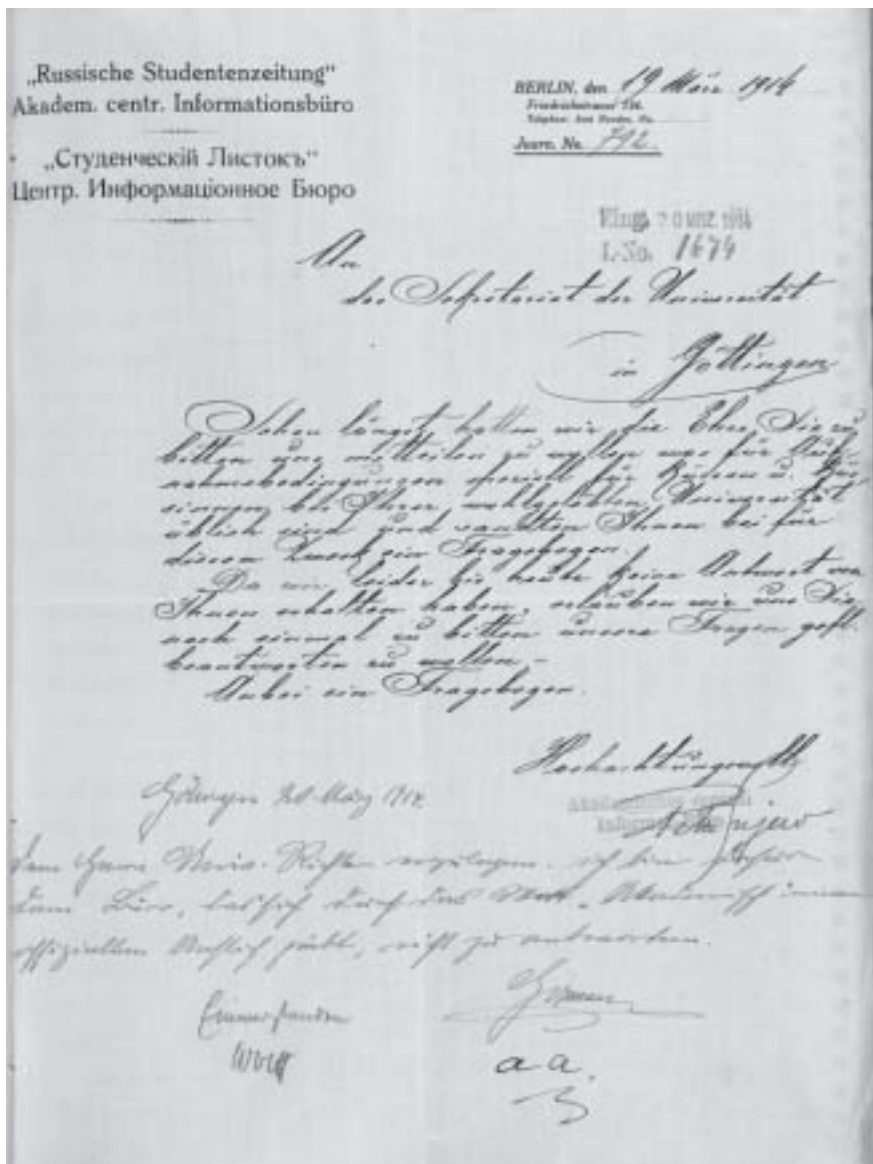 „Russische Studentenzeitung“
Akadem. centr. Informationsbüro
„Студенческій Листокъ“
Центр. Информаціонное Бюро
BERLIN, den 19 März 1914
Friedrichstrasse
Journ. No. 792.
Eing. 20 MRZ. 1914
I.-No. 1674
An
das Sekretariat der Universität
in Göttingen
Schon längst hatten wir die Ehre, Sie zu
bitten uns mitteilen zu wollen was für Auf-
nahmebedingungen speziell für Russen u. Rus-
sinnen bei Ihrer Universität
üblich sind und sandten Ihnen bei für
diesen Zweck ein Fragebogen.
Da wir leider bis heute keine Antwort von
Ihnen erhalten haben, erlauben wir uns Sie
noch einmal zu bitten unsere Fragen gefl.
beantworten zu wollen.-
Anbei ein Fragebogen.
Hochachtungsvoll
Göttingen 20. März 1914.
Dem Herrn Univ. Richter vorzulegen. ich bin dafür
dem Büro, das sich durch das Wort „
offiziellen Anstrich gibt, nicht zu antworten.
Einverstanden
Wolff
a. a.